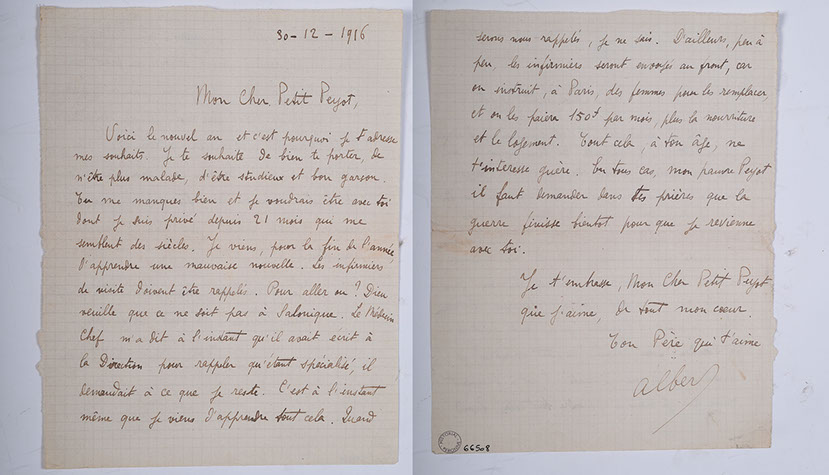 30-12-1916
Mon Cher Petit Peyot,
Voici le nouvel an et c'est pourquoi je t'adresse
mes souhaits. Je te souhaite de bien te porter, de
n'être plus malade, d'être studieux et bon garçon.
Tu me manques bien et je voudrais être avec toi
dont je suis privé depuis 21 mois qui me
semblent des siècles. Je viens, pour la fin de l'année
d'apprendre une mauvaise nouvelle. Les infirmiers
de visite doivent être rappelés. Pour aller ou ? Dieu
veuille que ce ne soit pas à Salonique. Le Médecin
Chef m'a dit à l'instant qu'il avait écrit à
la Direction pour rappeler qu'étant spécialisé, il
demandait à ce que je reste. C'est à l'instant
même que je viens d'apprendre tout cela. Quand
serons nous rappelés, je ne sais. D'ailleurs, peu à
peu, les infirmiers seront envoyés au front, car
on instruit, à Paris, des femmes pour les remplacer
et on les paiera 150f par mois, plus la nourriture
et le logement. Tout cela, à ton âge, ne
t'interesse guère. En tous cas, mon pauvre Peyot
il faut demander dans tes prières que la
guerre finisse bientot pour que je revienne
avec toi.
Je t'embrasse, Mon Cher Petit Peyot
que j'aime, de tout mon coeur.
Ton Père qui t'aime
Albert
66508